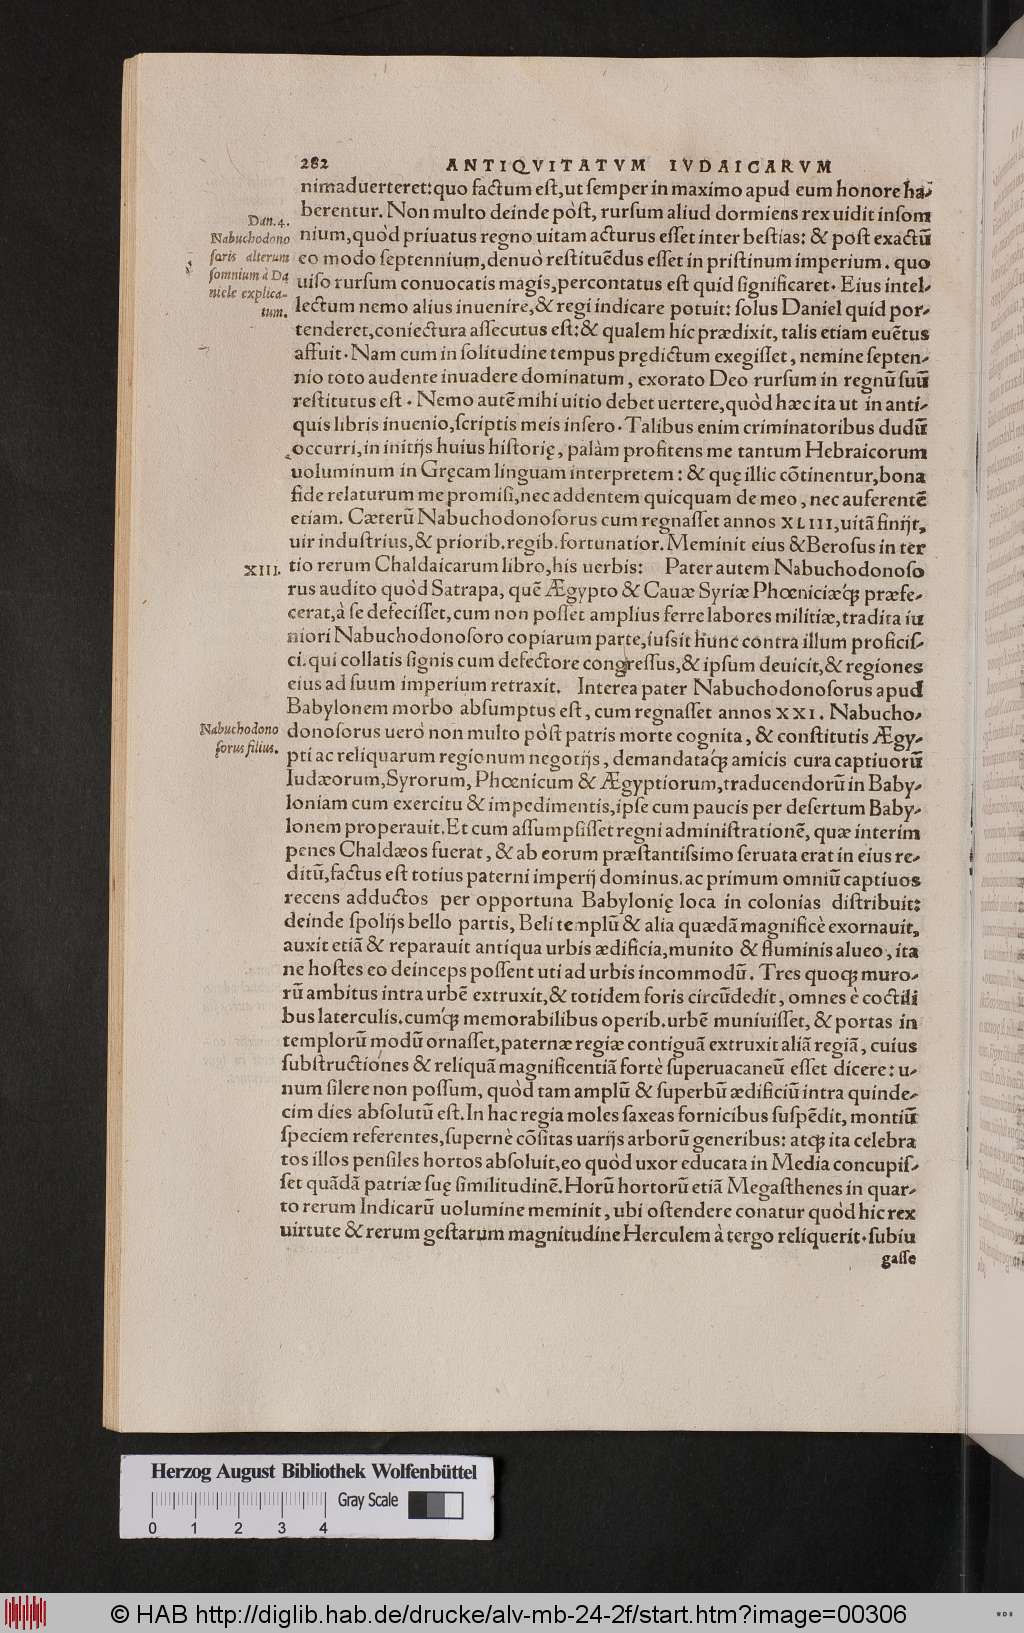 282 ANTIQVITATVM IVDAICARVM
nimaduerteret: quo factum eſt, ut ſemper in maximo apud eum honore ha-
berentur. Non multo deinde pòſt, rurſum aliud dormiens rex uidit inſom
nium, quòd priuatus regno uitam acturus eſſet inter beſtias: & poſt exactũ
eo modo ſeptennium, denuò reſtituẽdus eſſet in priſtinum imperium. quo
uiſo rurſum conuocatis magis, percontatus eſt quid ſignificaret. Eius intel-
lectum nemo alius inuenire, & regi indicare potuit: ſolus Daniel quid por-
tenderet, coniectura aſſecutus eſt: & qualem hic prædixit, talis etiam euẽtus
affuit. Nam cum in ſolitudine tempus prędictum exegiſſet, nemine ſepten-
nio toto audente inuadere dominatum, exorato Deo rurſum in regnũ ſuũ
reſtitutus eſt. Nemo autẽ mihi uitio debet uertere, quòd hæc ita ut in anti-
quis libris inuenio, ſcriptis meis inſero. Talibus enim criminatoribus dudũ
occurri, in initijs huius hiſtorię, palàm profitens me tantum Hebraicorum
uoluminum in Gręcam linguam interpretem: & quę illic cõtinentur, bona
fide relaturum me promiſi, nec addentem quicquam de meo, nec auferentẽ
etiam. Cæterũ Nabuchodonoſorus cum regnaſſet annos XLIII, uitã finijt,
uir induſtrius, & priorib. regib. fortunatior. Meminit eius & Beroſus in ter
tio rerum Chaldaicarum libro, his uerbis: Pater autem Nabuchodonoſo
rus audito quòd Satrapa, quẽ Ægypto & Cauæ Syriæ Phœniciæq́; præfe-
cerat, à ſe defeciſſet, cum non poſſet amplius ferre labores militiæ, tradita iu
niori Nabuchodonoſoro copiarum parte, iuſsit hunc contra illum proficiſ-
ci. qui collatis ſignis cum defectore congreſſus, & ipſum deuicit, & regiones
eius ad ſuum imperium retraxit. Interea pater Nabuchodonoſorus apud
Babylonem morbo abſumptus eſt, cum regnaſſet annos XXI. Nabucho-
donoſorus uerò non multo pòſt patris morte cognita, & conſtitutis Ægy-
pti ac reliquarum regionum negotijs, demandataq́; amicis cura captiuorũ
Iudæorum, Syrorum, Phœnicum & Ægyptiorum, traducendorũ in Baby-
loniam cum exercitu & impedimentis, ipſe cum paucis per deſertum Baby-
lonem properauit. Et cum aſſumpſiſſet regni adminiſtrationẽ, quæ interim
penes Chaldæos fuerat, & ab eorum præſtantiſsimo ſeruata erat in eius re-
ditũ, factus eſt totius paterni imperij dominus. ac primum omniũ captiuos
recens adductos per opportuna Babylonię loca in colonias diſtribuit:
deinde ſpolijs bello partis, Beli templũ & alia quædã magnificè exornauit,
auxit etiã & reparauit antiqua urbis ædificia, munito & fluminis alueo, ita
ne hoſtes eo deinceps poſſent uti ad urbis incommodũ. Tres quoq; muro-
rũ ambitus intra urbẽ extruxit, & totidem foris circũdedit, omnes è coctili
bus laterculis. cumq́; memorabilibus operib. urbẽ muniuiſſet, & portas in
templorũ modũ ornaſſet, paternæ regiæ contiguã extruxit aliã regiã, cuius
ſubſtructiones & reliquã magnificentiã fortè ſuperuacaneũ eſſet dicere: u-
num ſilere non poſſum, quòd tam amplũ & ſuperbũ ædificiũ intra quinde-
cim dies abſolutũ eſt. In hac regia moles ſaxeas fornicibus ſuſpẽdit, montiũ
ſpeciem referentes, ſupernè cõſitas uarijs arborũ generibus: atq; ita celebra
tos illos penſiles hortos abſoluit, eo quòd uxor educata in Media concupiſ-
ſet quãdã patriæ ſuę ſimilitudinẽ. Horũ hortorũ etiã Megaſthenes in quar-
to rerum Indicarũ uolumine meminit, ubi oſtendere conatur quòd hic rex
uirtute & rerum geſtarum magnitudine Herculem à tergo reliquerit. ſubiu
gaſſe
Dan. 4.
Nabuchodono
ſoris alterum
ſomnium à Da
niele explica-
tum.
XIII.
Nabuchodono
ſorus filius.
Herzog August Bibliothek Wolfenbüttel
Gray Scale
0 1 2 3 4
© HAB http://diglib.hab.de/drucke/alv-mb-24-2f/start.htm?image=00306